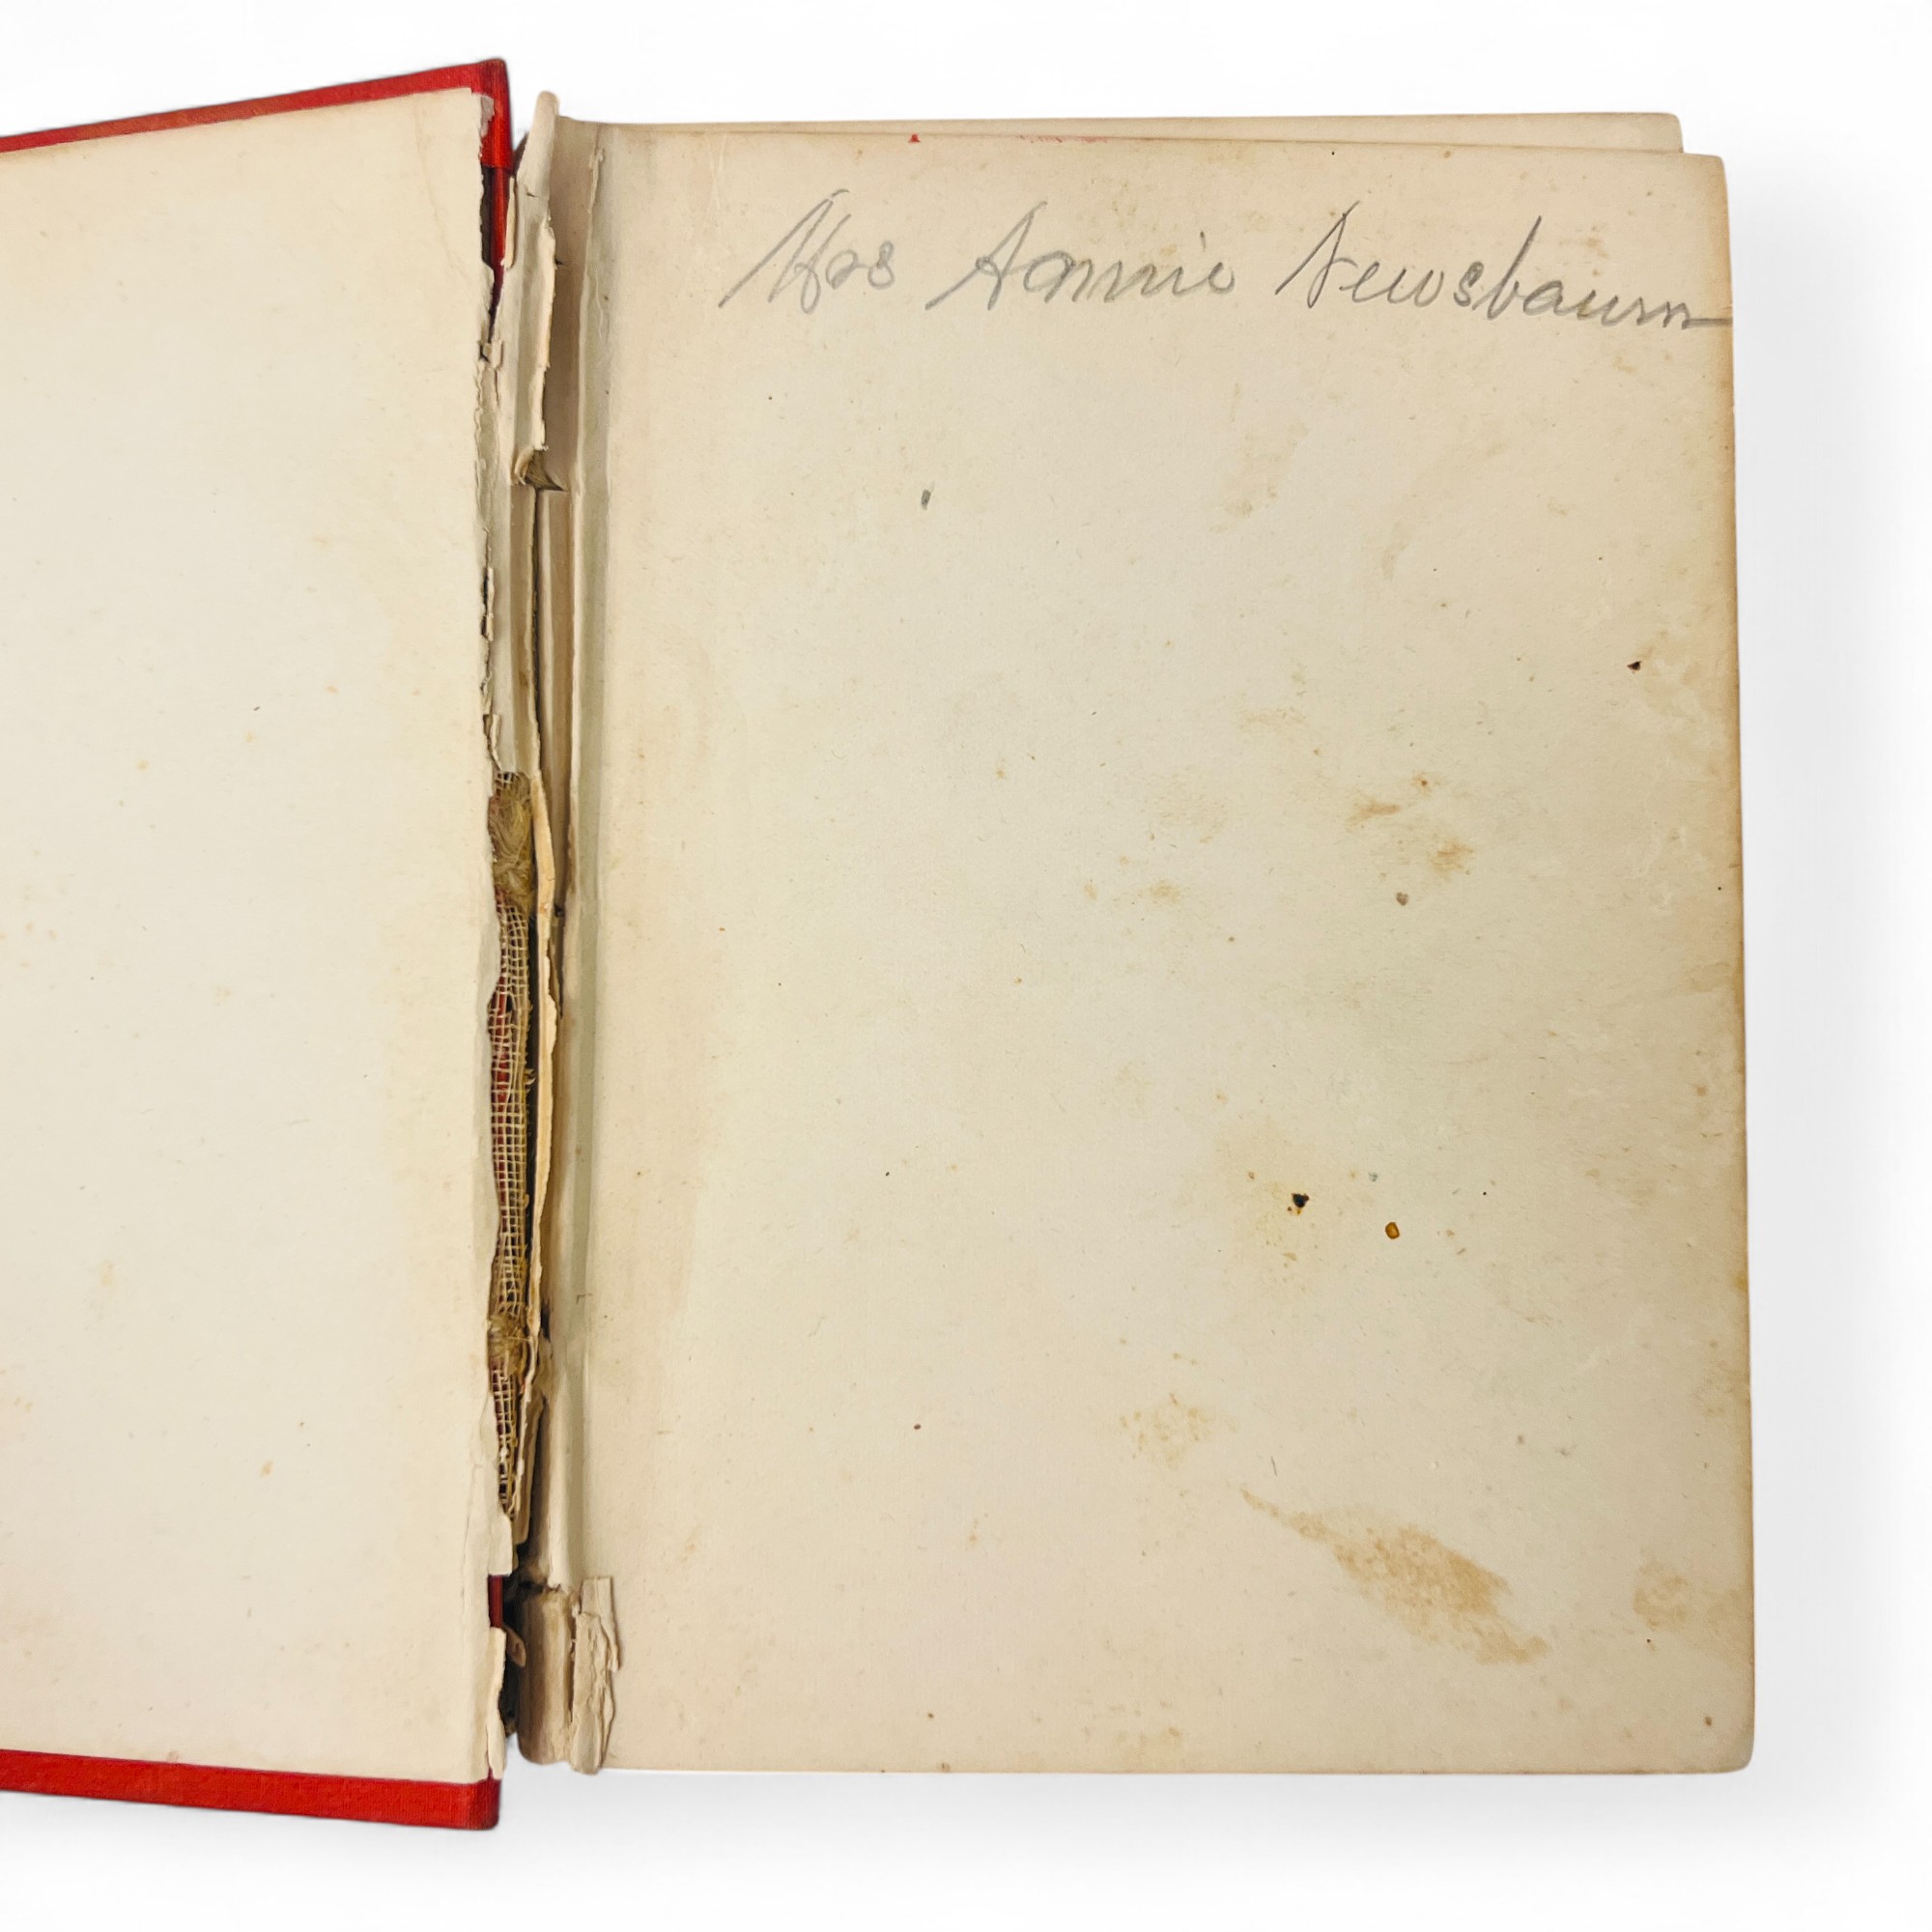 Mrs Annie Newsbaum